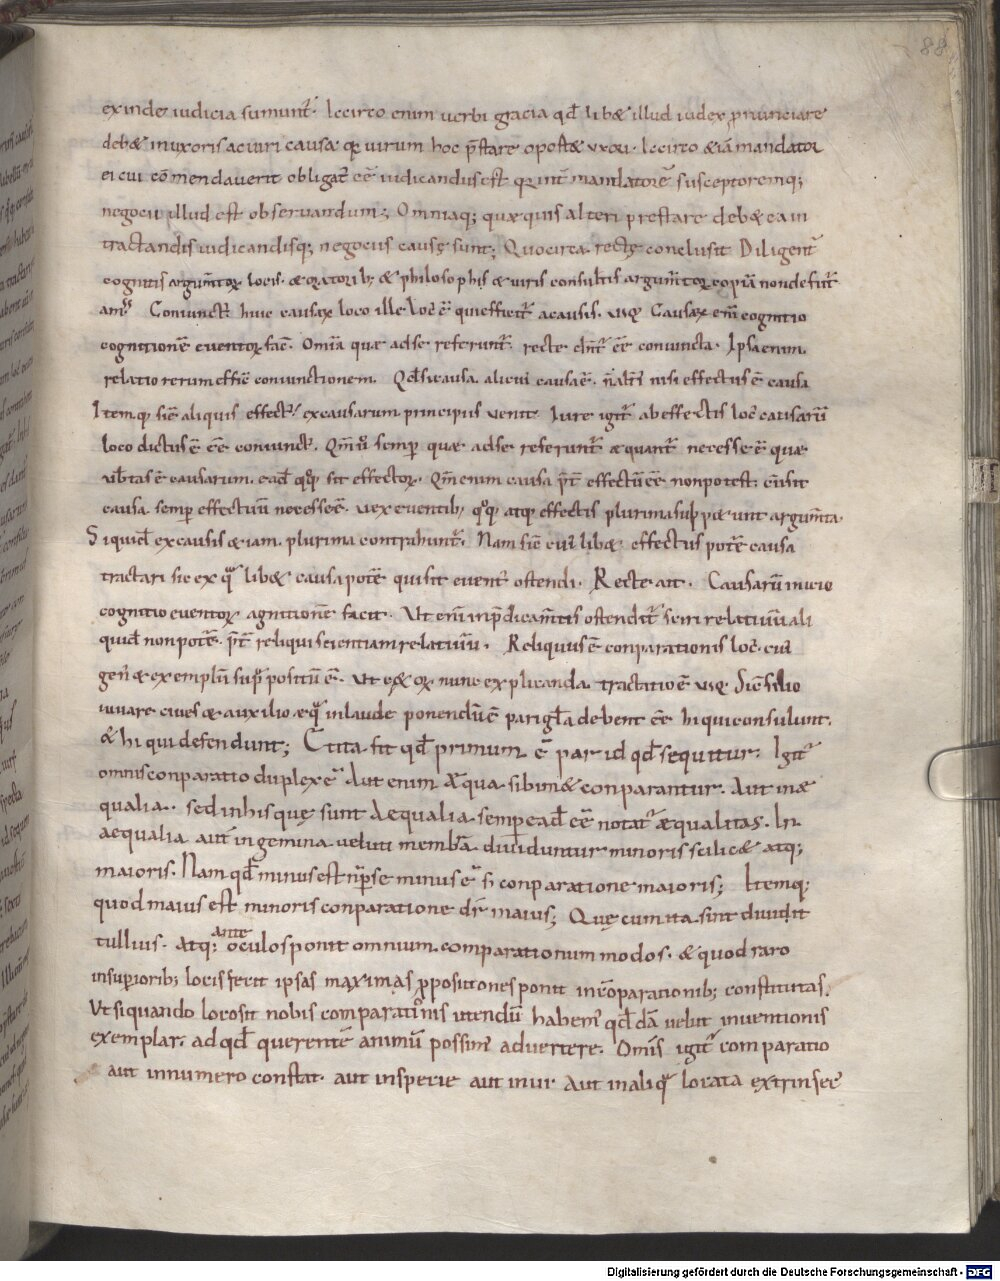 88
exinde iudicia sumunt̄. Iccirco enim uerbi gracia qđ libæ illud iudex pnunciare
debæ in uxoris ac uiri causa qꝫ uirum hoc p̄stare oportæ uxori. Iccirco &iā mandator
ei cui cōmendauerit obligat̄ eē iudicandus est qꝫ int̄ mandatorē susceptoremq;
negocii illud est obseruandum; Omniaq; quæ quis alteri prestare debæ ea in
tractandis iudicandisq; negociis causę sunt; Quocirca rectę conclusit Diligent̄
cognitis argum̄torꝝ locis. & oratorib; & philosophis & uiris consultis argum̄torꝝ copiā non defuit̄
Coniunct̄ huic causæ loco ille loc̄ ē qui efficit̄ a causis. Causæ em̄ cognitio
cognitionē euentorꝝ fac̄. Omīa quæ ad se referunt̄. recte dn̄t̄ eē coniuncta. Ipsa enim
relatio rerum effic̄ coniunctionem. Qđ si causa alicui causa ē. nisi effectus ē causa
Itemqꝫ sic̄ aliquis effect̄ ex causarum principiis uenit. Iure igit̄ ab effectis loc̄ causarū
loco dictus ē eē coniunct̄. Qm̄ ū semp quæ ad se referunt̄ æquant̄ necesse ē quæ
causarum. eađ qꝫ sit effectorꝝ. Qm̄ enim causa p̄t̄ effectū eē non potest. cū sit
causa. semp effectum necesse ē. uex euentib; qꝫ atqꝫ effectis plurima sup piæunt argum̄ta
Siquiđ ex causis &iam. plurima contrahunt̄. Nam sic̄ cui libæ effectus potē causa
tractari sic ex libæ causa potē quis sit euent̄ ostendi. Recte ait. Causarū
cognitio euentorꝝ agnitionē facit. Ut eni in p̄dicam̄tis ostendit̄ sciri relatiuū ali
quiđ non potē. p̄t̄ reliqui scientiam relatiuū. Reliquus ē conparationis loc̄. cui
gen̄ & exemplū sup̄ positū ē. Ut &orꝝ nunc explicanda tractatio ē Sic̄ filio
iuuare ciues & auxilio æq in laude ponendū ē pari gl̄a debent eē hi qui consulunt.
& hi qui defendunt; C ita fit qđ primum ē par id qđ sequitur. Igit̄
omnis conparatio duplex ē Aut enim Æqua sibimæ conparantur. Aut inæ
qualia. sed in his quę sunt Aequalia semp eađ eē notat̄ æqualitas. In
aequalia aut̄ in gemina ueluti membra diuiduntur minoris scilicæ atq;
maioris. Nam qđ minus est n̄ p se minus ē s; conparatione maioris; Itemq;
quod maius est minoris conparatione dr̄ maius; Quę cum ita sint diuidit
tullius. Atq; ante oculos ponit omnium comparationum modos. & quod raro
insuprioribꝫ locis fecit ipsas maximas ppositiones ponit in cōparationibꝫ constitutas.
Ut si quando locosit nobis comparationis utendū habem̄ qđ dā uelut inuentionis
exemplar. ad qđ querentē animū possim̄ aduertere. Om̄is igit̄ comparatio
aut in numero constat. aut in specie aut in ui. Aut in aliq locata extrinsec̄
Digitalisierung gefördert durch die Deutsche Forschungsgemeinschaft - DFG